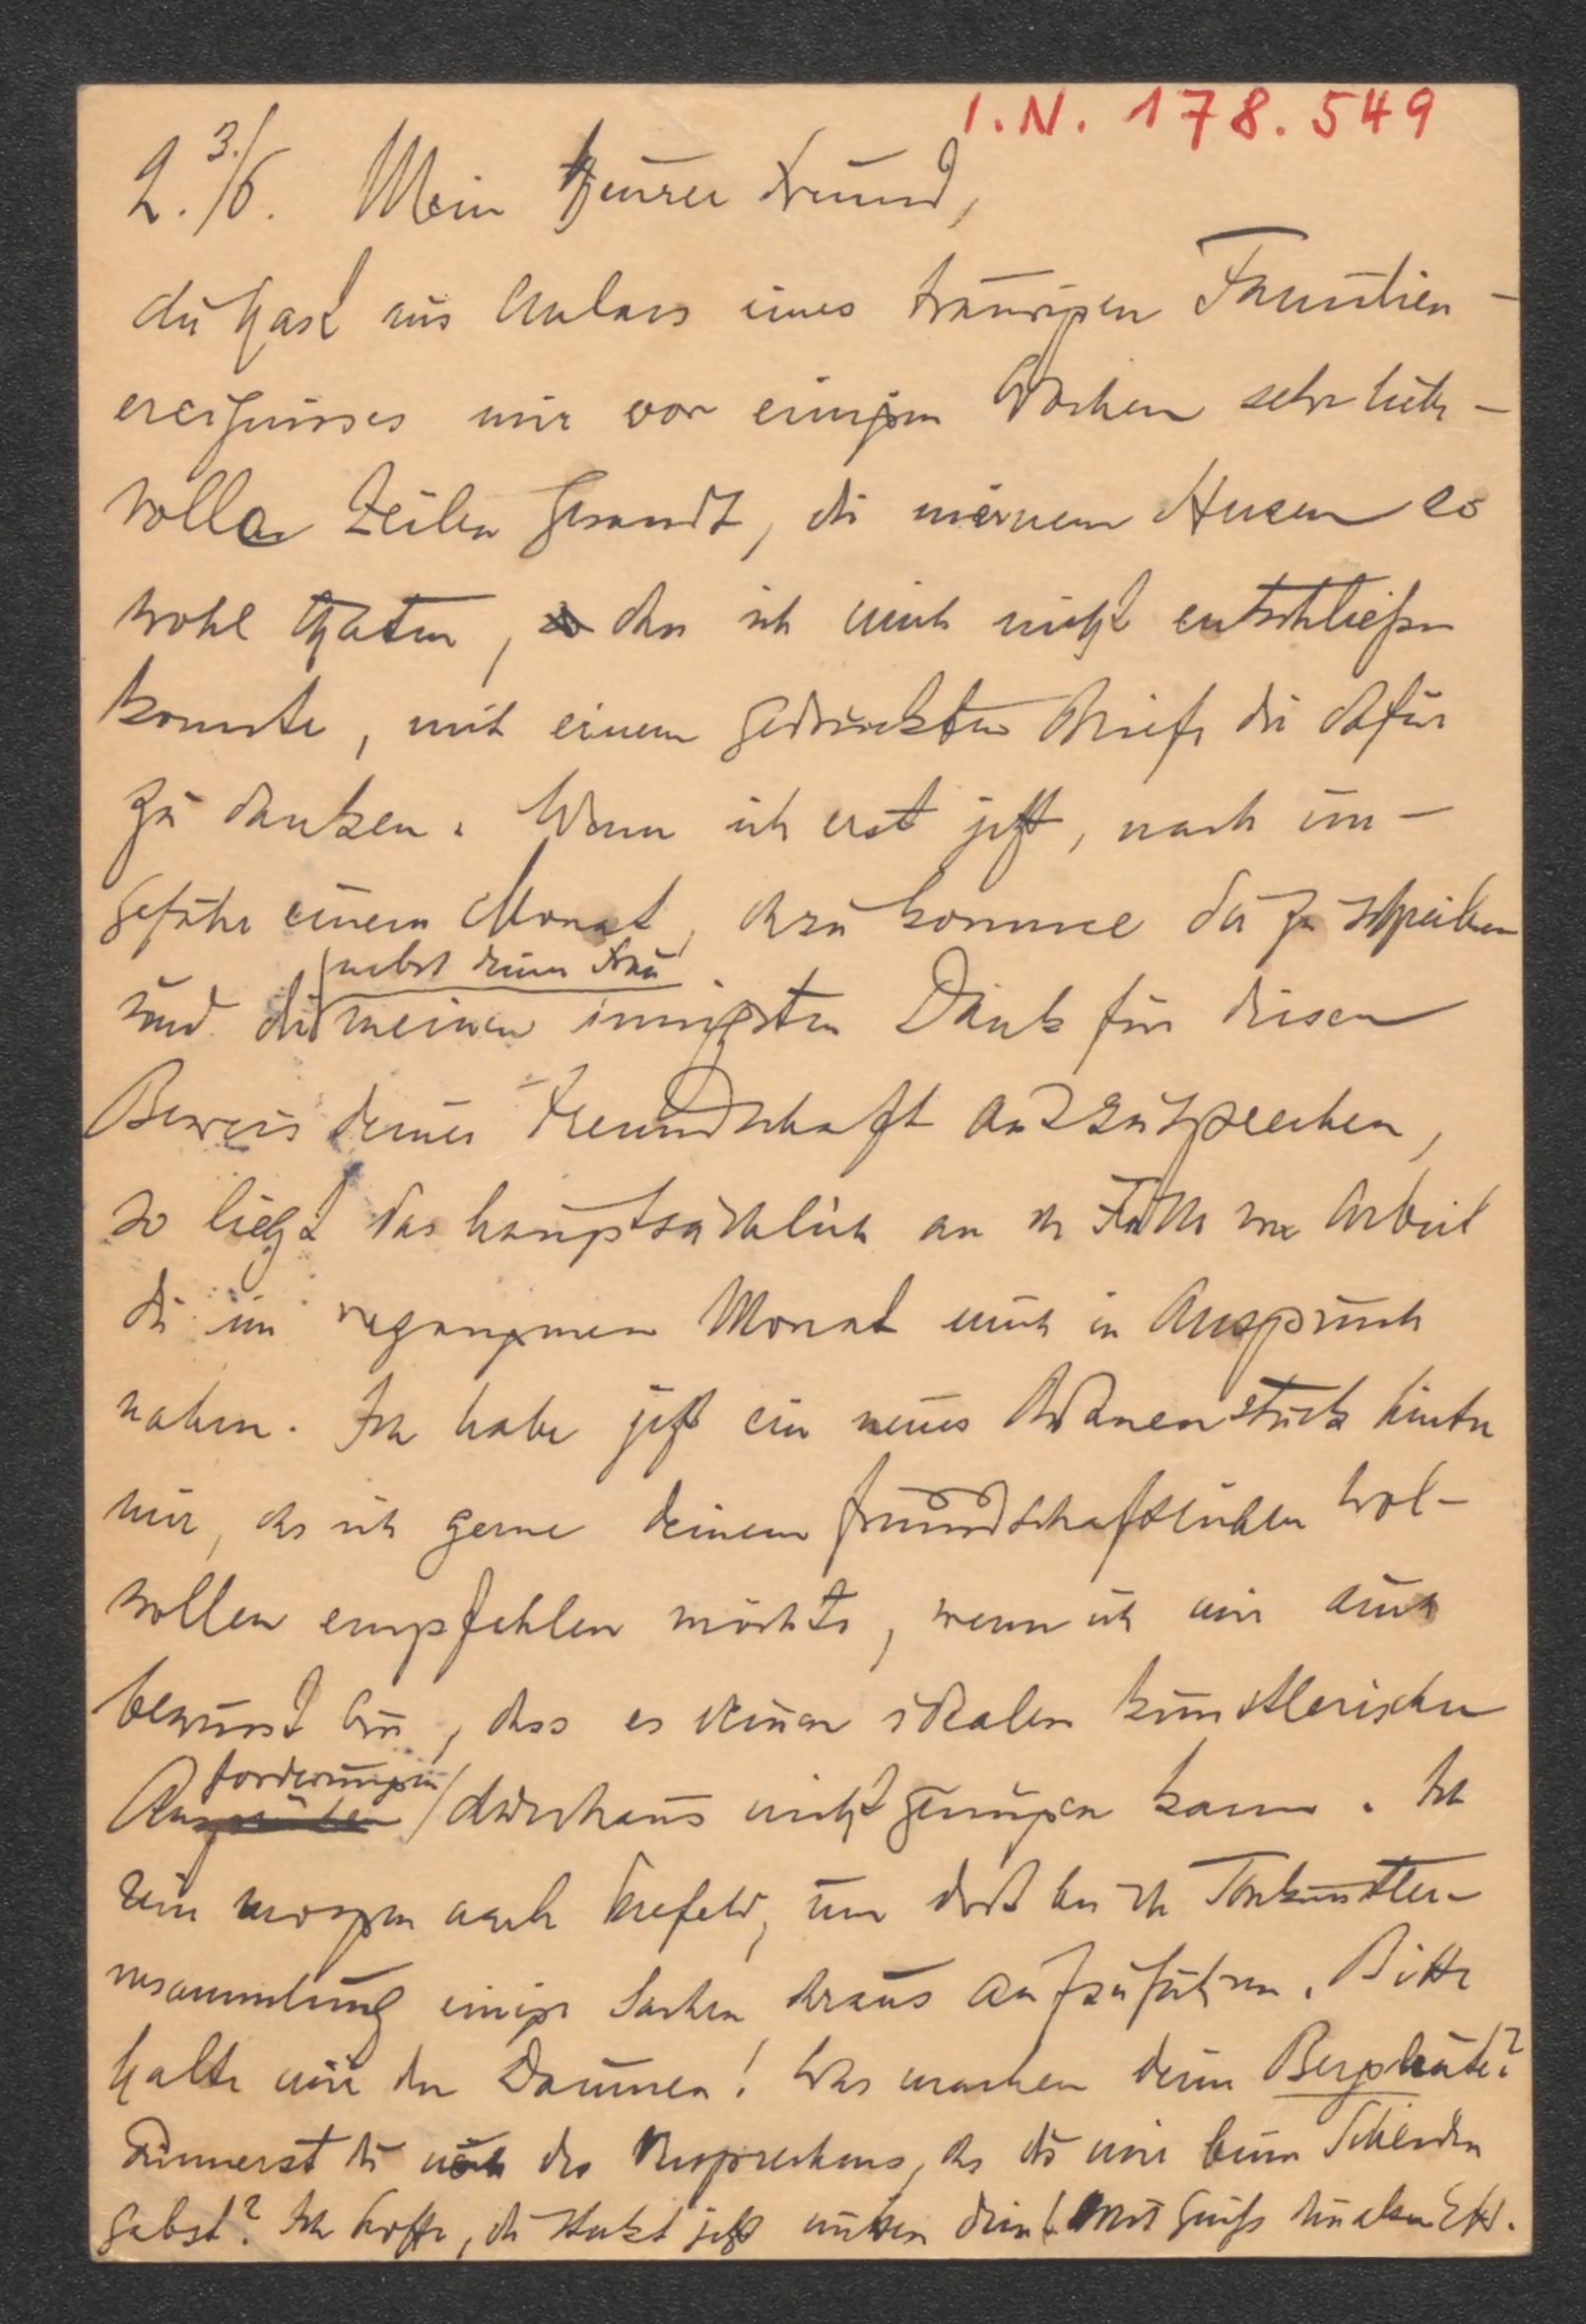 I. N. 178.549
2. 3./6. Mein theurer Freund,
du hast aus Anlass eines traurigen Familien-
ereignisses mir vor einigen Wochen sehr liebe-
volle Zeilen gesandt, die meinem Herzen so
wohl thaten, dass ich mich nicht entschließen
konnte, mit einem gedruckten Briefe dir dafür
zu danken. Wenn ich erst jetzt, nach un-
gefähr einem Monat, dazu komme dir zu schreiben
nebst deiner Frau
und dir meinen innigsten Dank für diesen
Beweis deiner Freundschaft auszusprechen,
so liegt das hauptsächlich an der Fülle von Arbeit
die im vergangenen Monat mich in Anspruch
nahm. Ich habe jetzt ein neues Bühnenstück hinter
mir, das ich gerne deinem freundschaftlichen Wol-
wollen empfehlen möchte, wenn ich mir auch
bewusst bin, dass es deinen idealen künstlerischen
forderungen
An durchaus nicht genügen kann. Ich
bin morgen nach Krefeld, um dort bei der Tonkünstler-
versammlung einige Sachen daraus aufzuführen. Bitte
halte mir den Daumen! Was machen deine Bergleute?
Erinnerst du mich des Versprechens, das du mir beim Scheiden
gabst? Ich hoffe, du steckst jetzt mitten drin! Mit Gruß dein alter